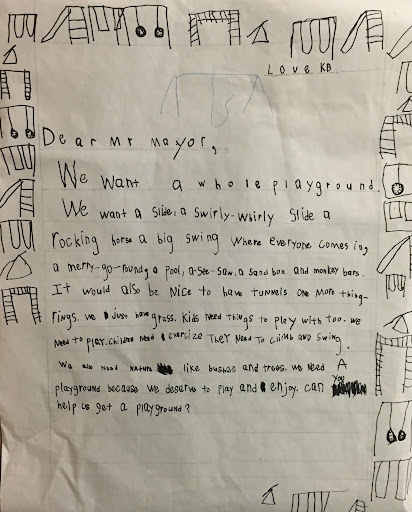 Love KB
Dear Mr Mayor,
We want a whole playground.
We want a slide, a swirly-whirly slide a
rocking horse a big swing where everyone comes in,
a merry-go-round, a pool, a-see-saw, a sand box and monkey bars.
It would also be nice to have tunnels one more thing-
rings. we just have grass. kids need things to play with too. we
need to play. children need exercize They need to climb and swing.
we also need nature like bushes and trees. we need A
playground because we deserve to play and enjoy. can you
help us get a playground?